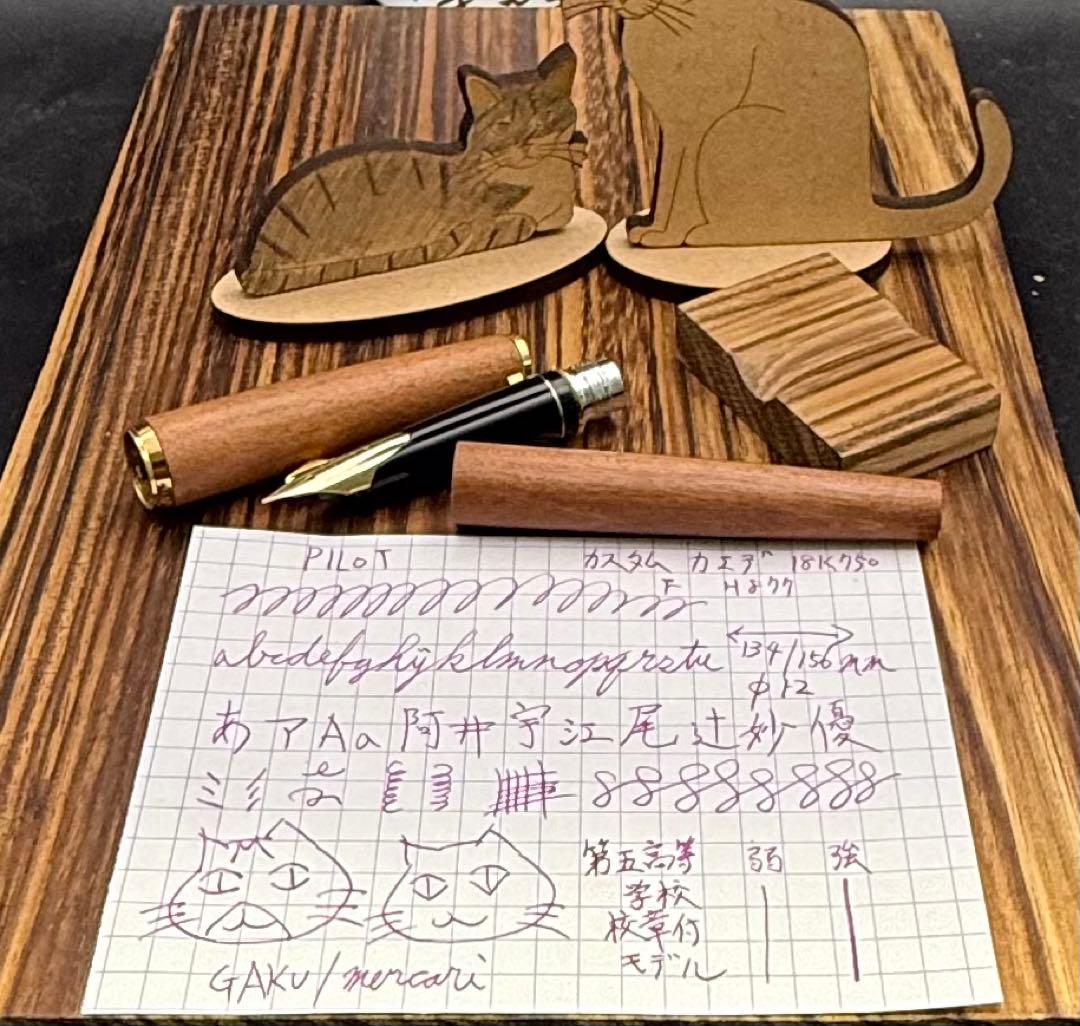 PILOT カスタム カエデ 18K750
F H877
abcdefghijklmnopqrstu 134/156mm
φ12
あ ア A a 阿 井 宇 江 尾 辻 妙 優
第五高等 弱 強
学校
校章付
モデル
GAKU/mercari